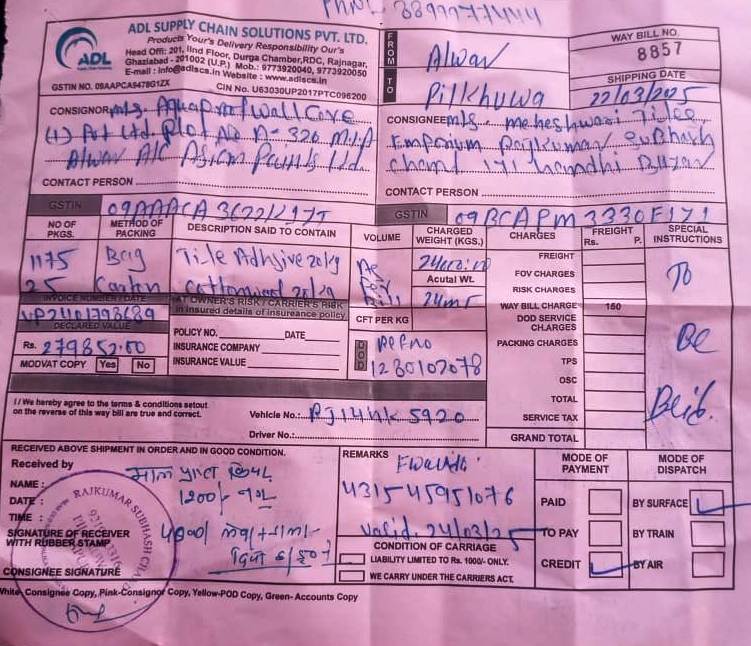 PHNO- 8899977444
ADL
ADL SUPPLY CHAIN SOLUTIONS PVT. LTD.
Products Your's Delivery Responsibility Our's
Head Offi: 201, IInd Floor, Durga Chamber,RDC, Rajnagar,
Ghaziabad - 201002 (U.P.) Mob.: 9773920040, 9773920050
E-mail : info@adlscs.in Website : www.adlscs.in
GSTIN NO. 09AAPCA9478G1ZX CIN No. U63030UP2017PTC096200
FROM Alwar
TO Pilkhuwa
WAY BILL NO.
8857
SHIPPING DATE
22/03/2025
CONSIGNOR M/s. Aquaproof Wall Care
(I) Pvt Ltd. Plot No A-326 M.I.A
Alwar A/c Asian Paints Ltd.
CONTACT PERSON
GSTIN
CONSIGNEE M/s. Maheshwari Tiles
Emporium Rajkumar Subhash
Chand 171 Gandhi Bazar
CONTACT PERSON
GSTIN 09BCAPM3330F1Z1
NO OF PKGS. METHOD OF PACKING DESCRIPTION SAID TO CONTAIN VOLUME CHARGED WEIGHT (KGS.) CHARGES FREIGHT Rs. P. SPECIAL INSTRUCTIONS
1175 Bag Tile Adhsive 20kg As
25 Carton Per Bill
Acutal Wt.
24MT
FREIGHT
FOV CHARGES
RISK CHARGES
WAY BILL CHARGE 150
DOD SERVICE CHARGES
PACKING CHARGES
TPS
OSC
TOTAL
SERVICE TAX
GRAND TOTAL
To
Be
INVOICE NUMBER / DATE
DECLARED VALUE
Rs. 279852.00
MODVAT COPY Yes No
AT OWNER'S RISK / CARRIER'S RISK
in insured details of insureance policy
POLICY NO. DATE
INSURANCE COMPANY
INSURANCE VALUE
CFT PER KG
DOD
Ref no
1230107078
I / We hereby agree to the terms & conditions setout
on the reverse of this way bill are true and correct.
Vehicle No.: RJ14HK 5920
Driver No.:
RECEIVED ABOVE SHIPMENT IN ORDER AND IN GOOD CONDITION.
Received by
NAME :
DATE :
TIME :
SIGNATURE OF RECEIVER
WITH RUBBER STAMP
CONSIGNEE SIGNATURE
RAJKUMAR SUBHASH CHAND
माल प्राप्त किया
1200/- नग
REMARKS Ewaybill:
431545951076
Valid. 24/03/25
CONDITION OF CARRIAGE
LIABILITY LIMITED TO Rs. 1000/- ONLY.
WE CARRY UNDER THE CARRIERS ACT.
MODE OF PAYMENT
PAID
TO PAY
CREDIT
MODE OF DISPATCH
BY SURFACE
BY TRAIN
BY AIR
White- Consignee Copy, Pink-Consignor Copy, Yellow-POD Copy, Green- Accounts Copy